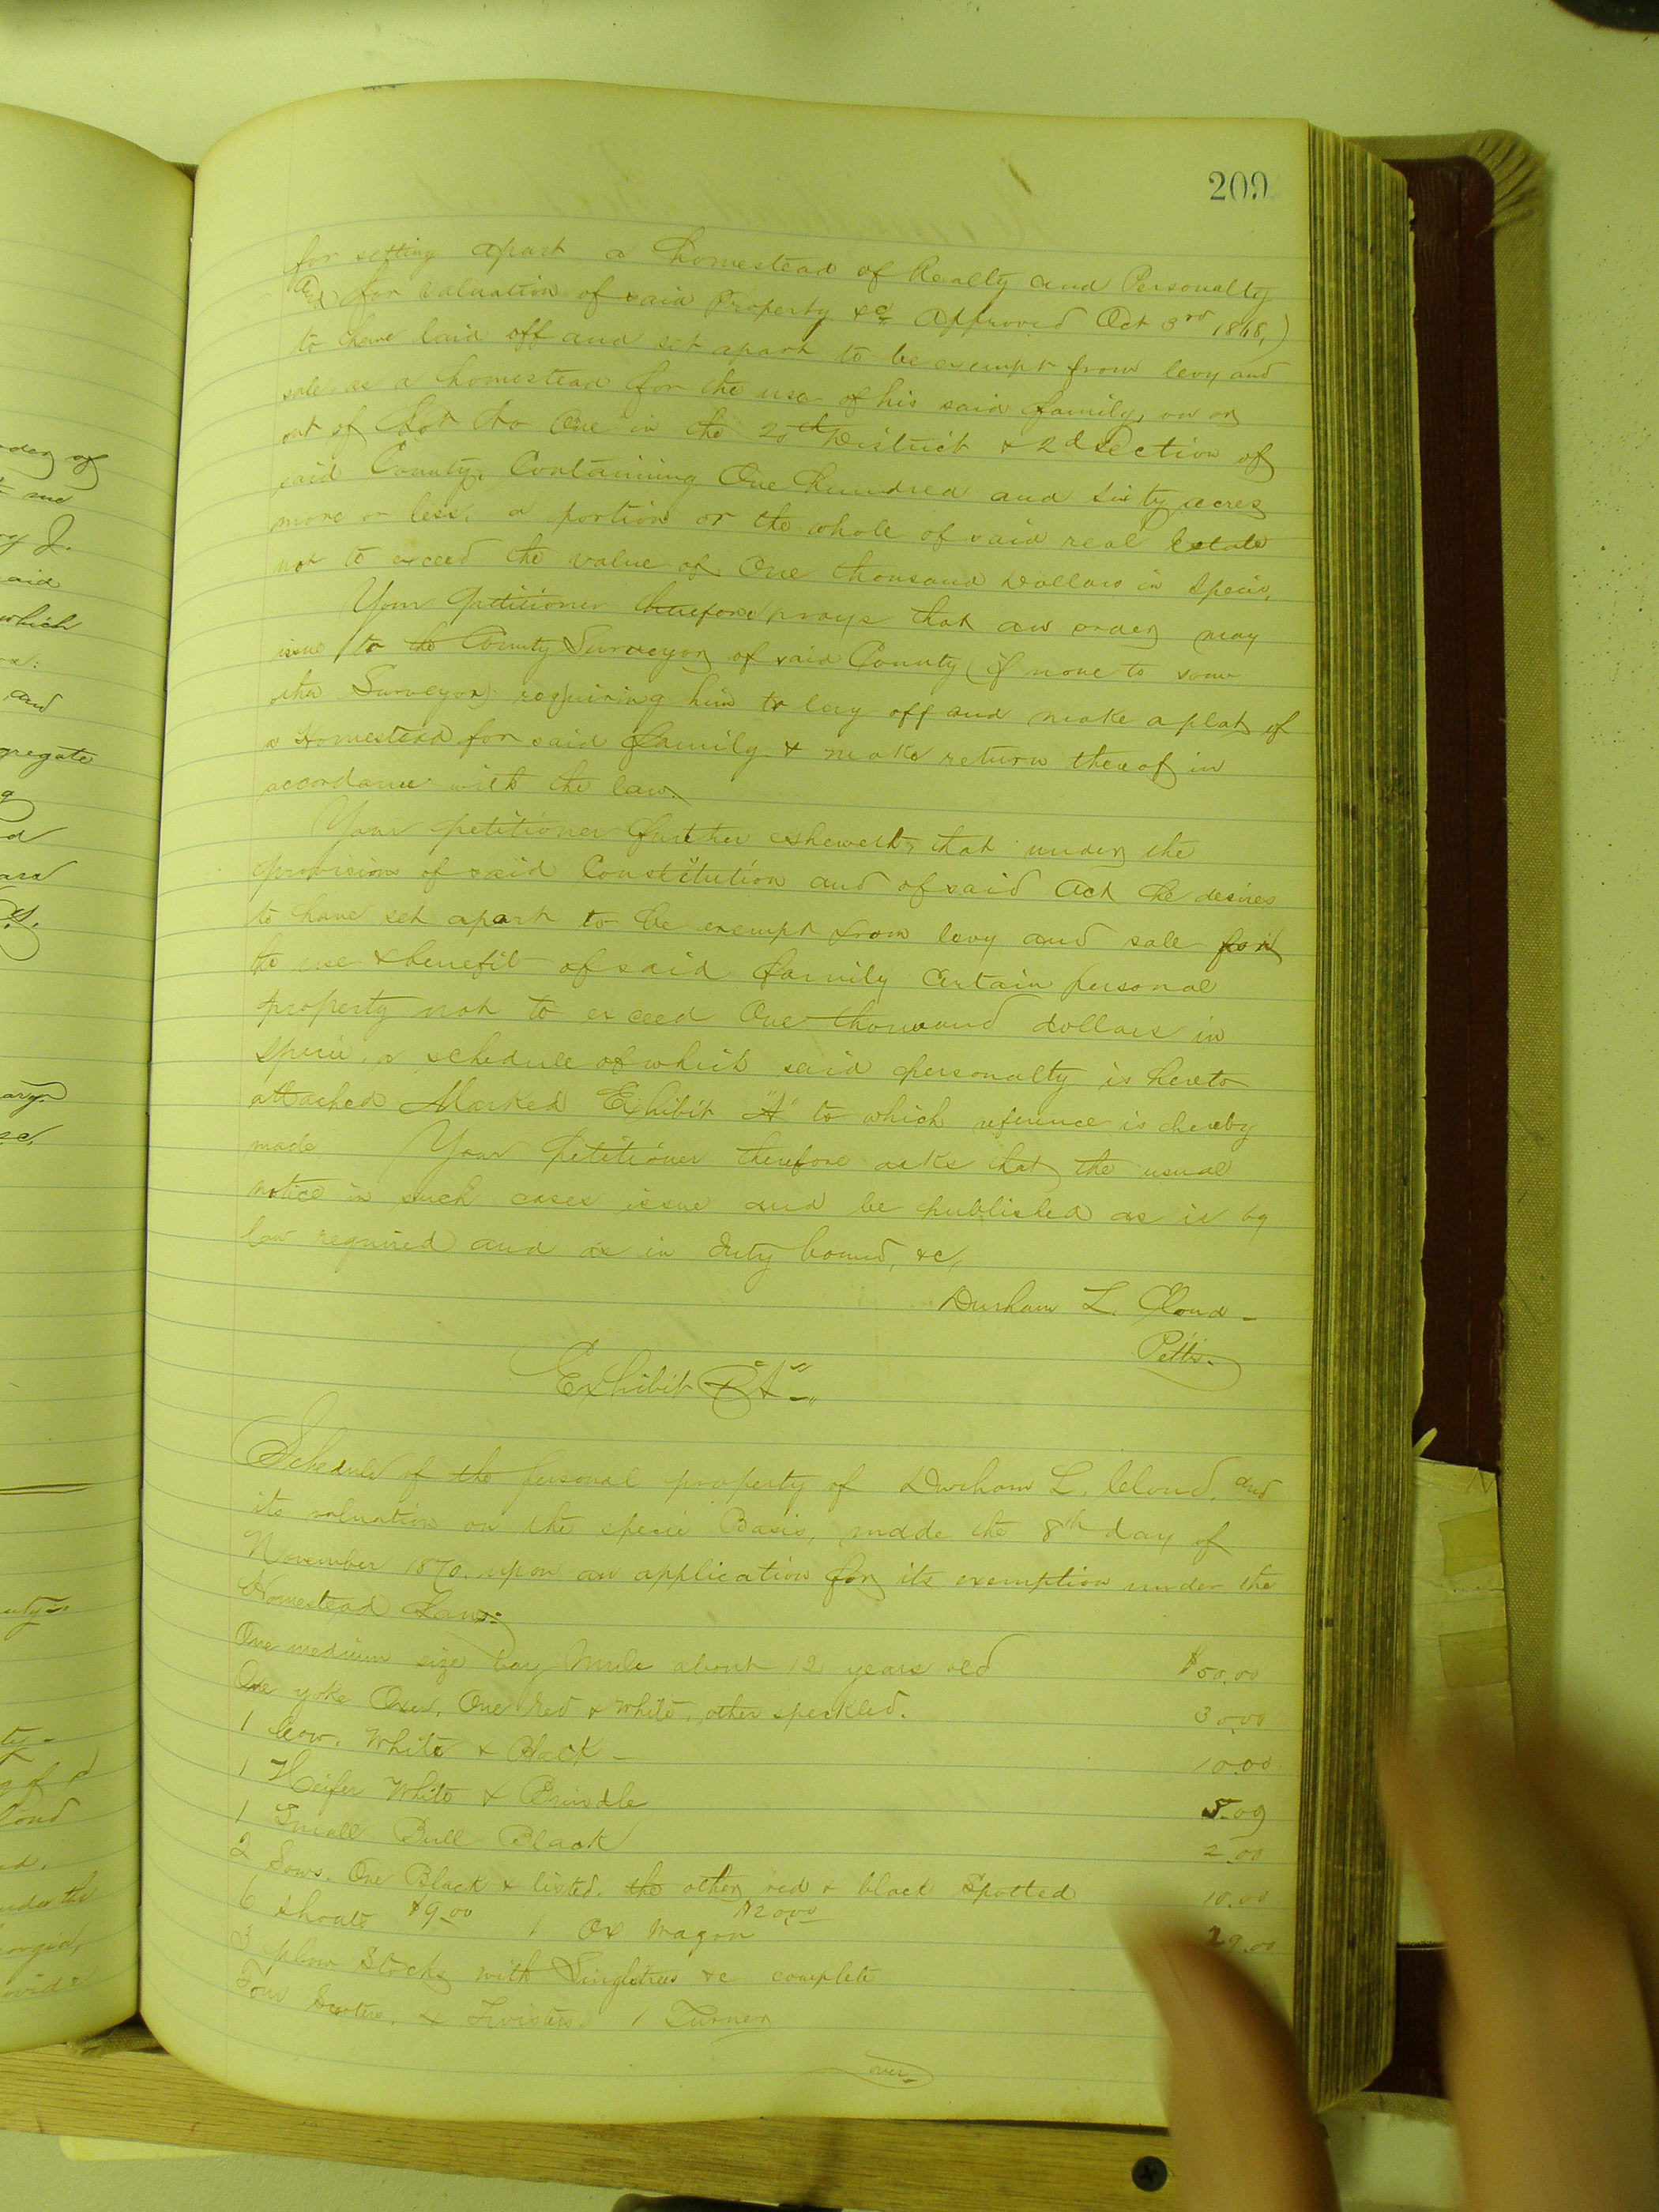 209
for setting apart a homestead of Realty and Personalty
and for valuation of said Property &c Approved Oct 3rd 1868,)
to have laid off and set apart to be exempt from levy and
sale as a homestead for the use of his said family, on or
out of Lot No One in the 20th District & 2d Section of
said County, Containing One hundred and sixty acres
more or less. a portion or the whole of said real Estate
not to exceed the value of One thousand Dollars in Specie,
Your Petitioner therefore prays that an order may
issue to the County Surveyor of said County (if none to some
other Surveyor) requiring him to lay off and make a plat of
a Homestead for said family & make return thereof in
accordance with the law.
Your petitioner further sheweth, that under the
provisions of said Constitution and of said Act he desires
to have set apart to be exempt from levy and sale for
the use & benefit of said family Certain personal
property not to exceed One thousand dollars in
specie, a schedule of which said personalty is hereto
attached Marked Exhibit "A" to which reference is hereby
made Your Petitioner therefore asks that the usual
notice in such cases issue and be published as is by
law required and as in duty bound, &c,
Durham L. Cloud
Pettr.
Exhibit "A"
Schedule of the personal property of Durham L. Cloud, and
its valuation on the specie Basis, made the 8th day of
November 1870. upon an application for its exemption under the
Homestead Law:
One medium size bay Mule about 12 years old $50.00
One yoke Oxen, One Red & White, other speckled. 30.00
1 Cow, White & Black 10.00
1 Heifer White & Brindle 5.00
1 Small Bull Black 2.00
2 Sows, One Black & listed, the other red & black Spotted 10.00
6 Shoats $9.00 1 Ox Wagon $20.00 29.00
3 plow Stocks with Singletrees &c complete
Four Scooters, & Twisters 1 Turner
over